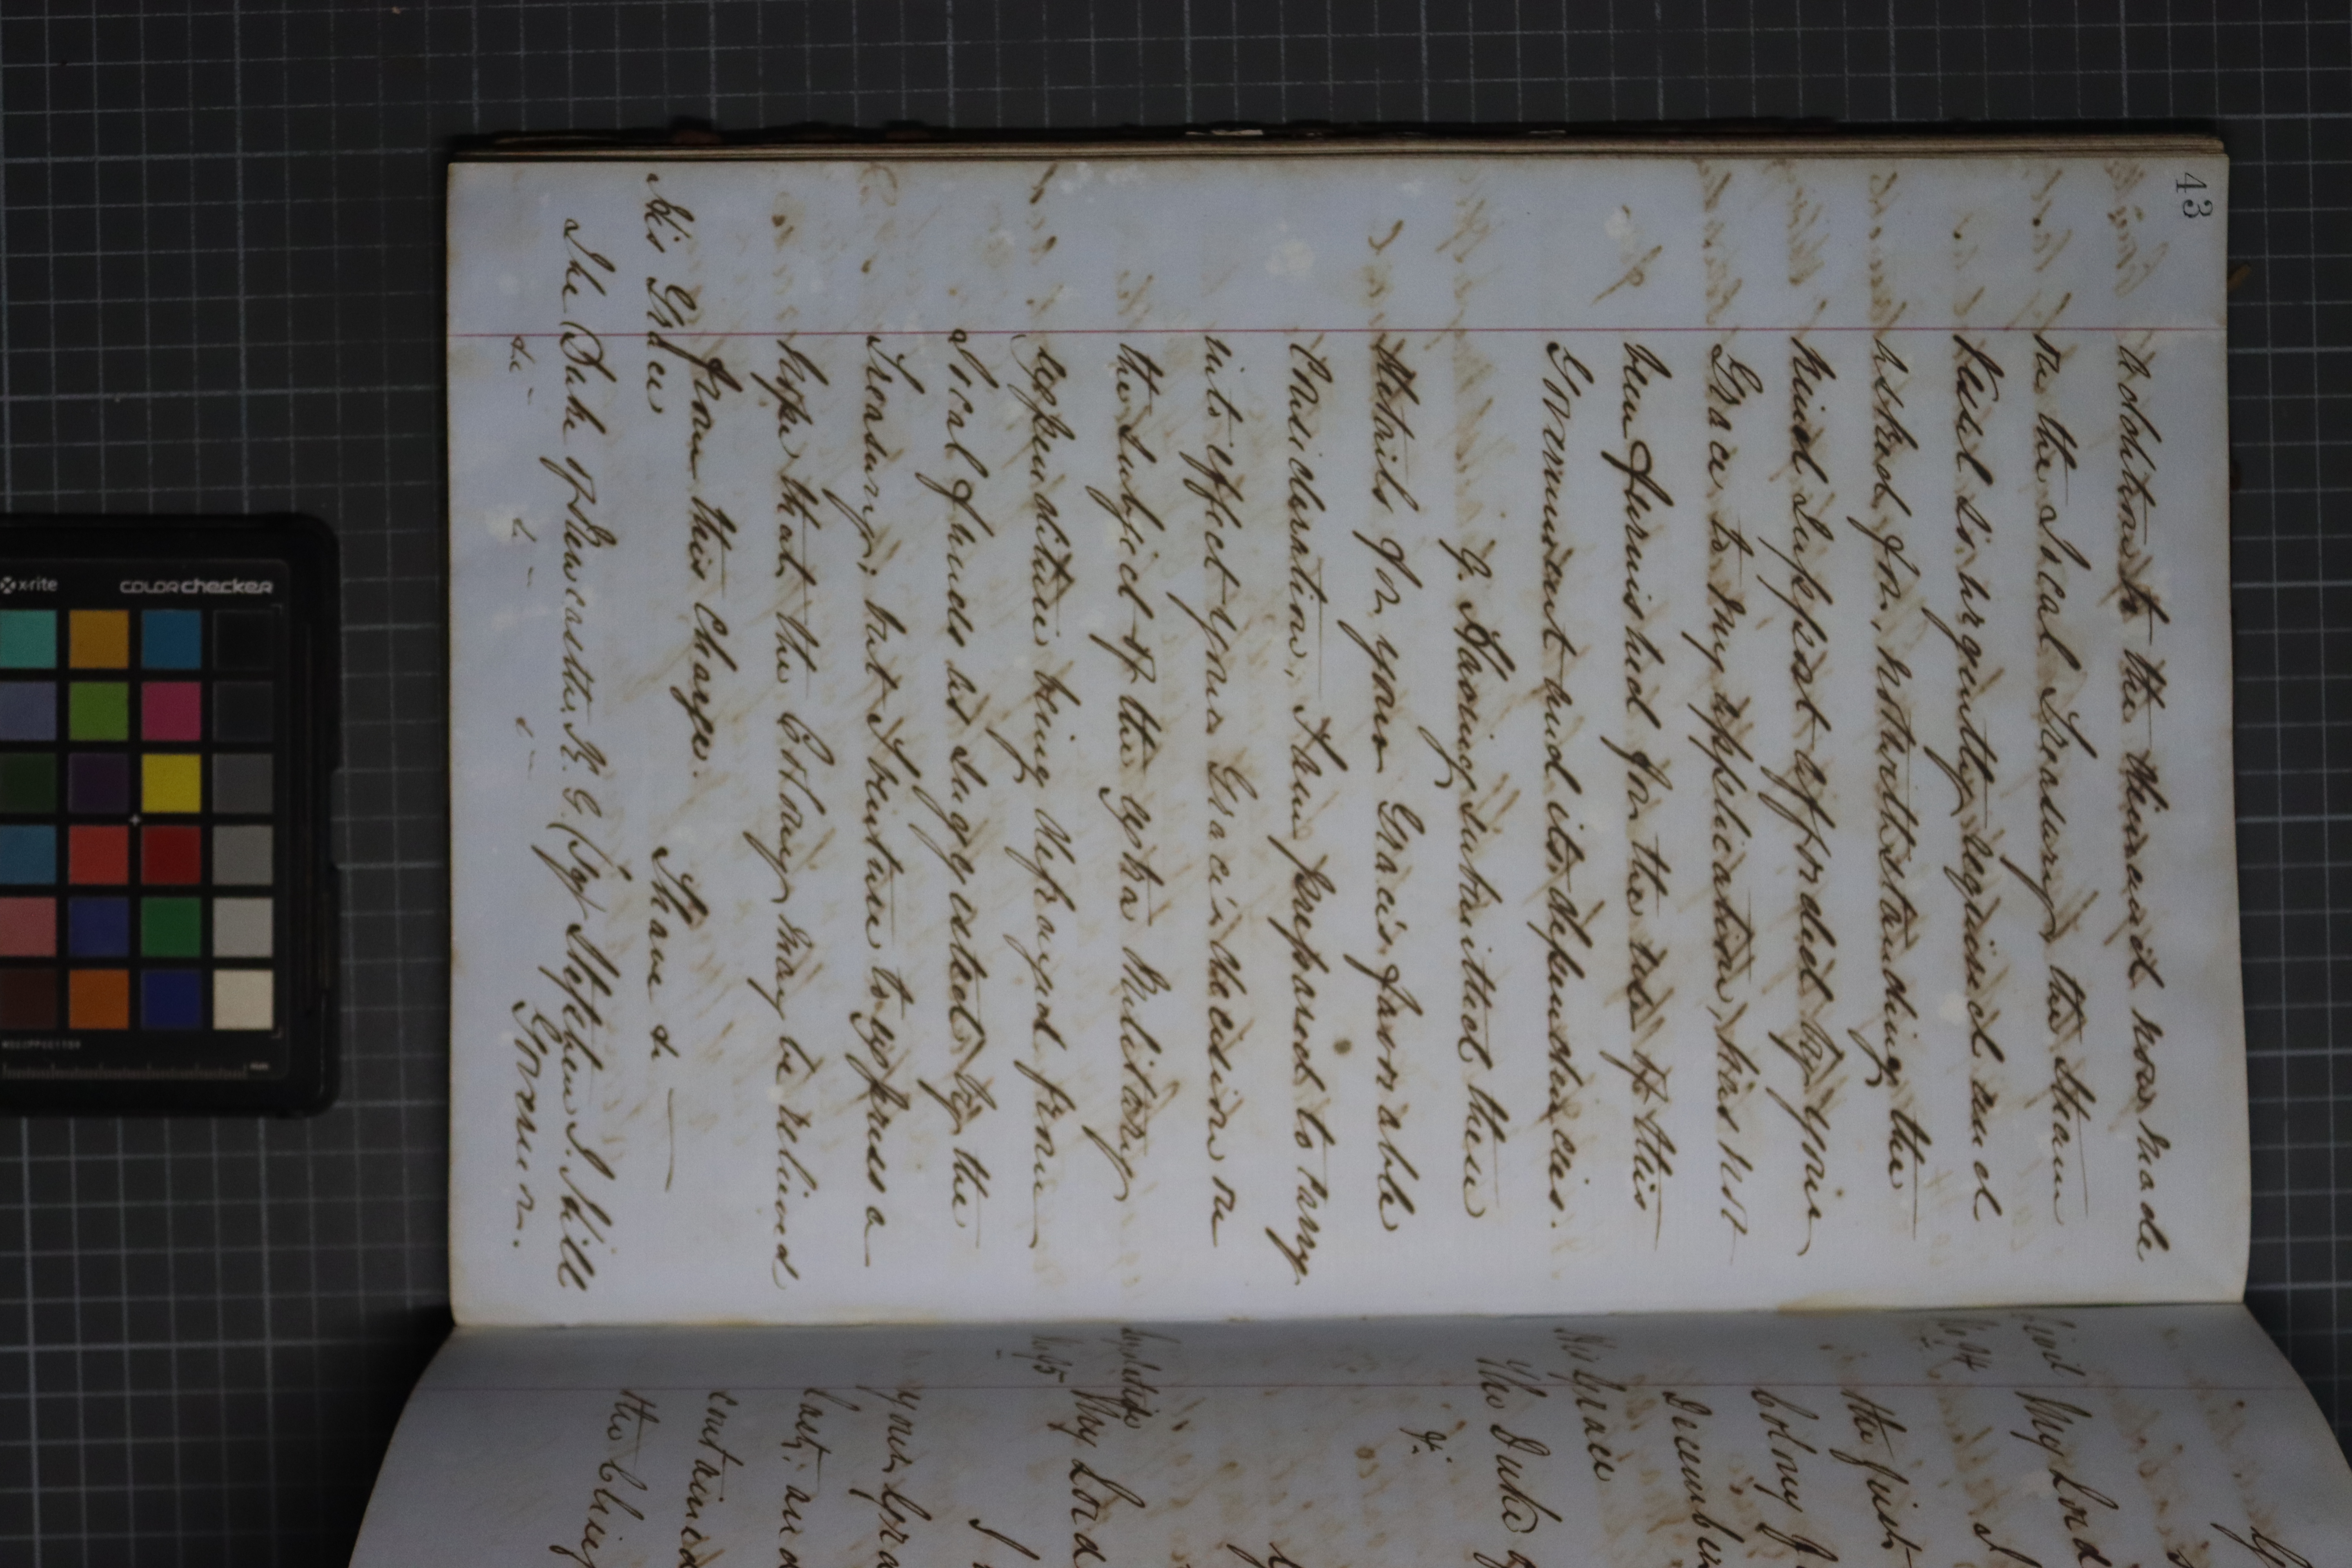 43
addition to the demand now made
on the Local Treasury, the Steam
Vessel so urgently required and
asked for, notwithstanding the
kind support afforded by your
Grace to my application, has not
been furnished for the use of this
Government and its dependencies.
9. Having submitted these
details for your Grace's favorable
Consideration, I am prepared to carry
into effect your Grace's decision on
the subject of the extra Military
expenditure being defrayed from
Local funds as suggested by the
Treasury; but I venture to express a
hope that the Colony may be relieved
from this charge.
I have &c
His Grace
The Duke of Newcastle K.G. (Sg) Stephen J. Hill
&c &c &c Governor.
My Lord
the first
Colony f
December
His Grace
The Duke of
&c
My Lord
I
your Gra
last; and
contained
the Chief
x-rite
colorchecker